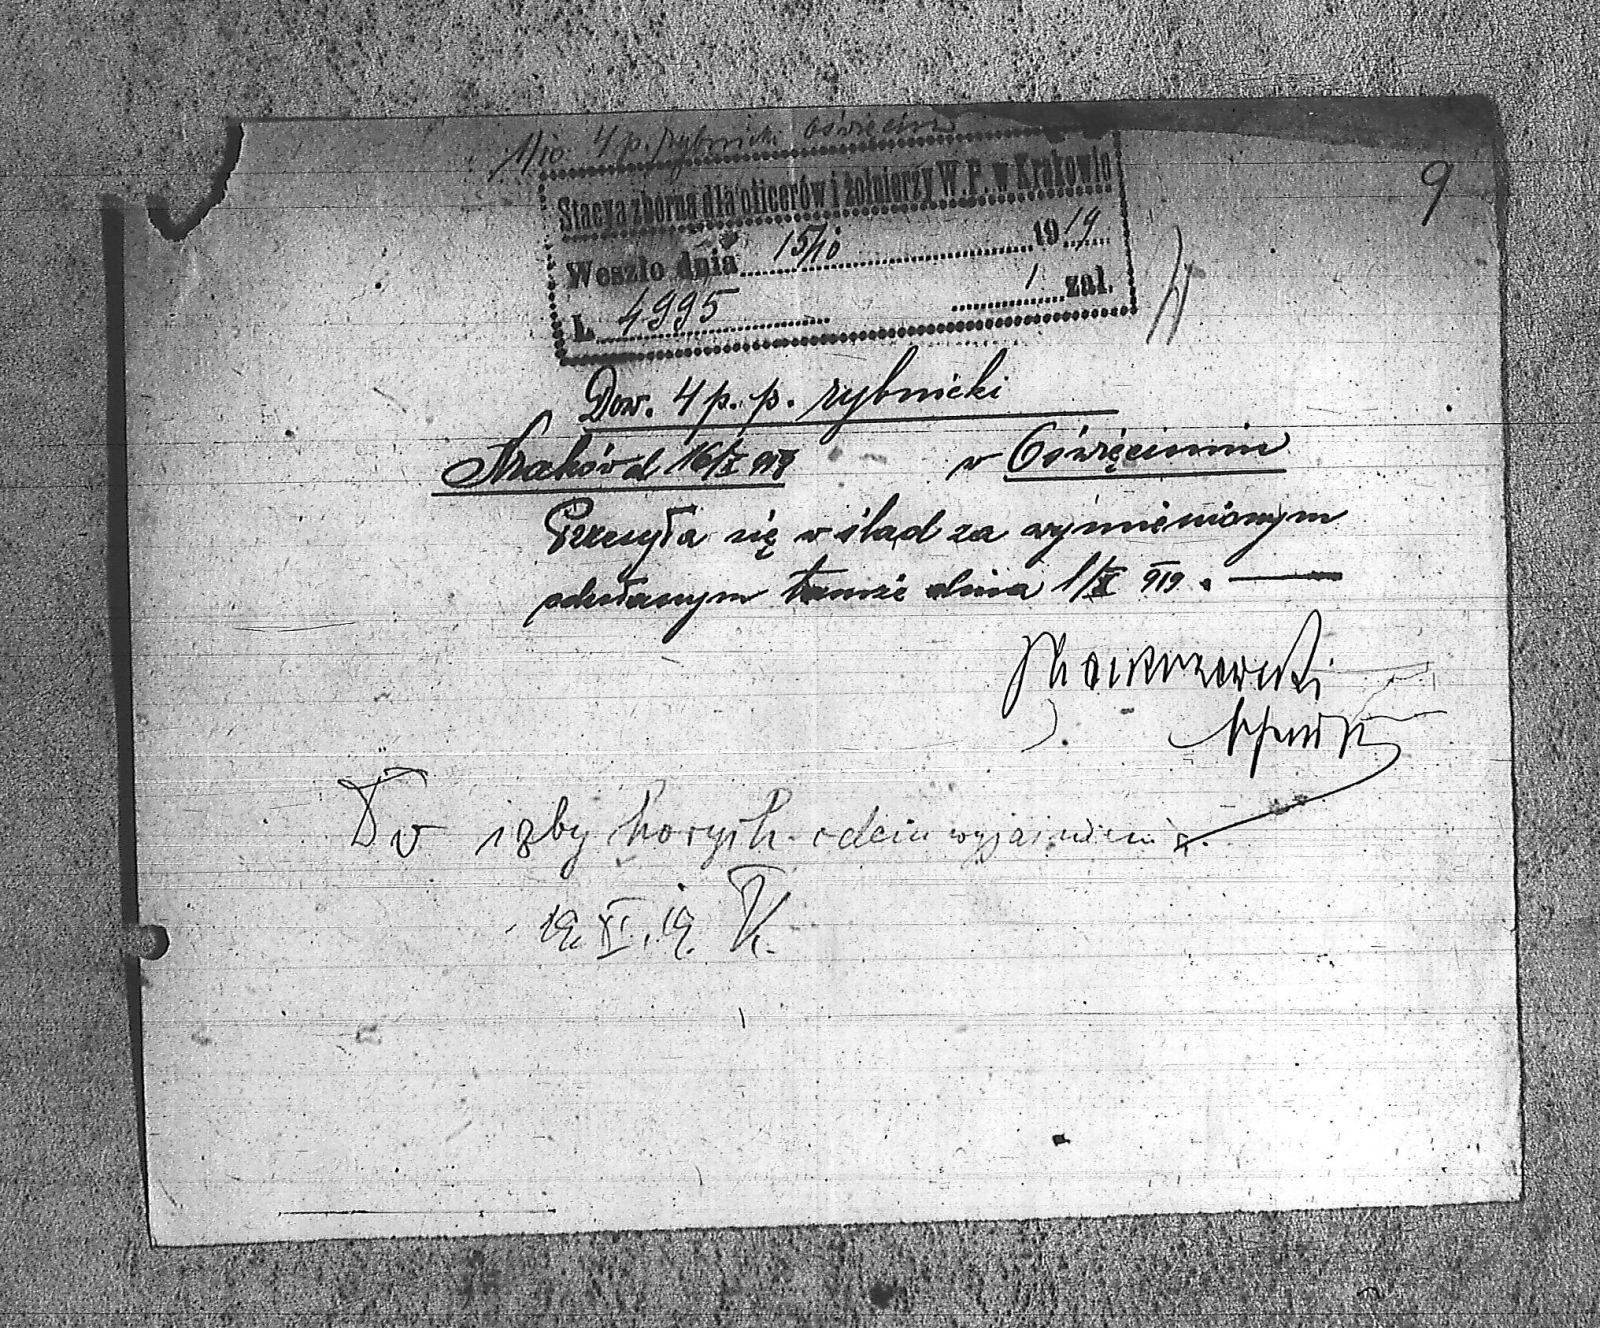 1/10 4 p. rybnicki Oświęcim
9
Stacya zborna dla oficerów i żołnierzy W. P. w Krakowie
Weszło dnia 15/10 1919
L. 4995 1 zał.
Dow. 4 p. p. rybnicki
Kraków d 16/X 919 w Oświęcimiu
Przesyła się w ślad za wymienionym
odesłanym tamże dnia 1/X 919.
Do izby horych celem wyjaśnienia.
19. XI. 19.